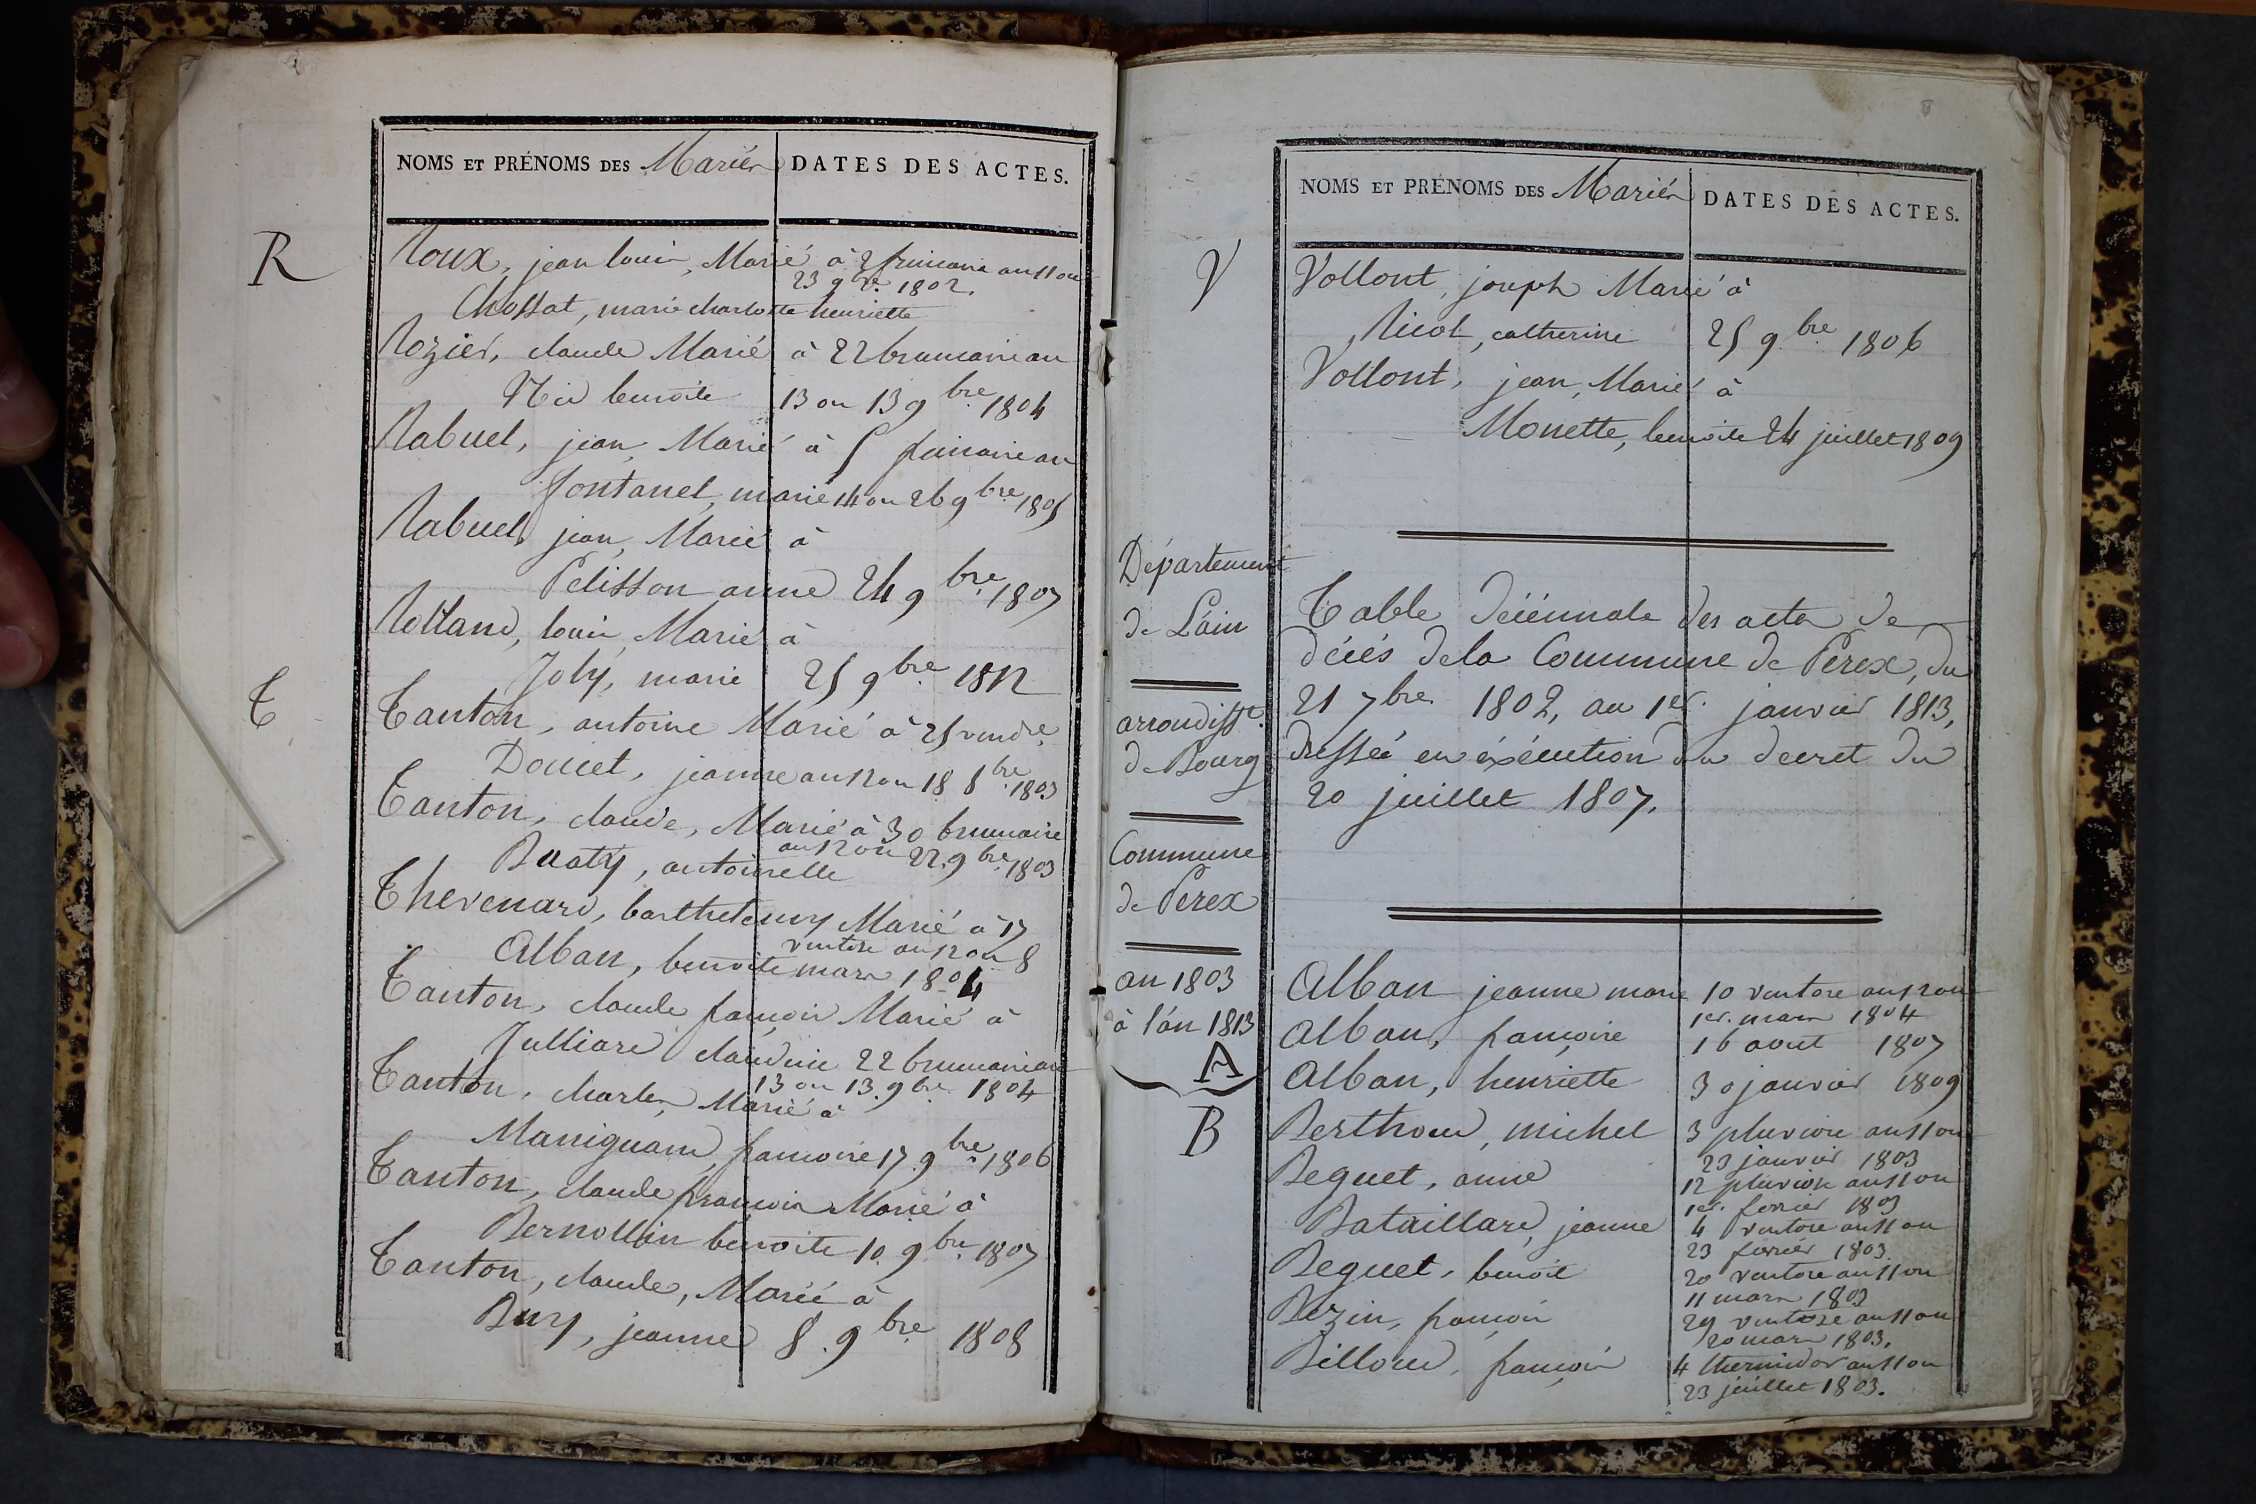 NOMS ET PRÉNOMS DES Mariés
DATES DES ACTES.
R
Roux, jean louis, Marié à 2 frimaire an 11 ou
23 9bre 1802.
Chossat, marie charlotte henriette
Rozier, claude Marié à 22 brumaire an
benoite 13 ou 13 9bre 1804
Rabuel, jean, Marié à 5 frimaire an
fontanel, marie 14 ou 26 9bre 1805
Rabuel, jean, Marié à
Pelisson anne 24 9bre 1807
Rolland, louis, Marié à
Joly, marie 25 9bre 1812
T
Tanton, antoine Marié à 25 vendre
Doucet, jeanne an 12 ou 18 8bre 1803
Tanton, claude, Marié à 30 brumaire
an 12 ou 22. 9bre 1803
Buaty, antoinette
Thevenard, barthelemy Marié à 17
ventose an 12 ou 8
Alban, benoite mars 1804
Tanton, claude françois Marié à
Julliard claudine 22 brumaire an
13 ou 13. 9bre 1804
Tanton, charles, Marié à
Maniguand françoise 17. 9bre 1806
Tanton, claude françois Marié à
Bernollin benoite 10. 9bre 1807
Tanton, claude, Marié à
Bury, jeanne 8. 9bre 1808
NOMS ET PRÉNOMS DES Mariés
DATES DES ACTES.
V
Vollont, joseph Marié à
Nicol, catherine 25 9bre 1806
Vollont, jean, Marié à
Monette, benoite 24 juillet 1809
Département
de L'ain
arrondisst.
de Bourg
Commune
de Perex
an 1803
à l'an 1813
Table décénnale des actes de
décés de la Commune de Perex, du
21 7bre 1802, au 1er. janvier 1813,
dressée en éxécution du decret du
20 juillet 1807.
A
Alban jeanne marie 10 ventose an 12 ou
1er. mars 1804
Alban, françoise 16 aout 1807
Alban, henriette 30 janvier 1809
B
Berthoud, michel 3 pluviose an 11 ou
23 janvier 1803
Beguet, anne 12 pluviose an 11 ou
1er. fevrier 1803
Bataillard, jeanne 4 ventose an 11 ou
23 fevrier 1803.
Beguet, benoit 20 ventose an 11 ou
11 mars 1803
Bozin, françois 29 ventose an 11 ou
20 mars 1803.
Billoud, françois 4 thermidor an 11 ou
23 juillet 1803.